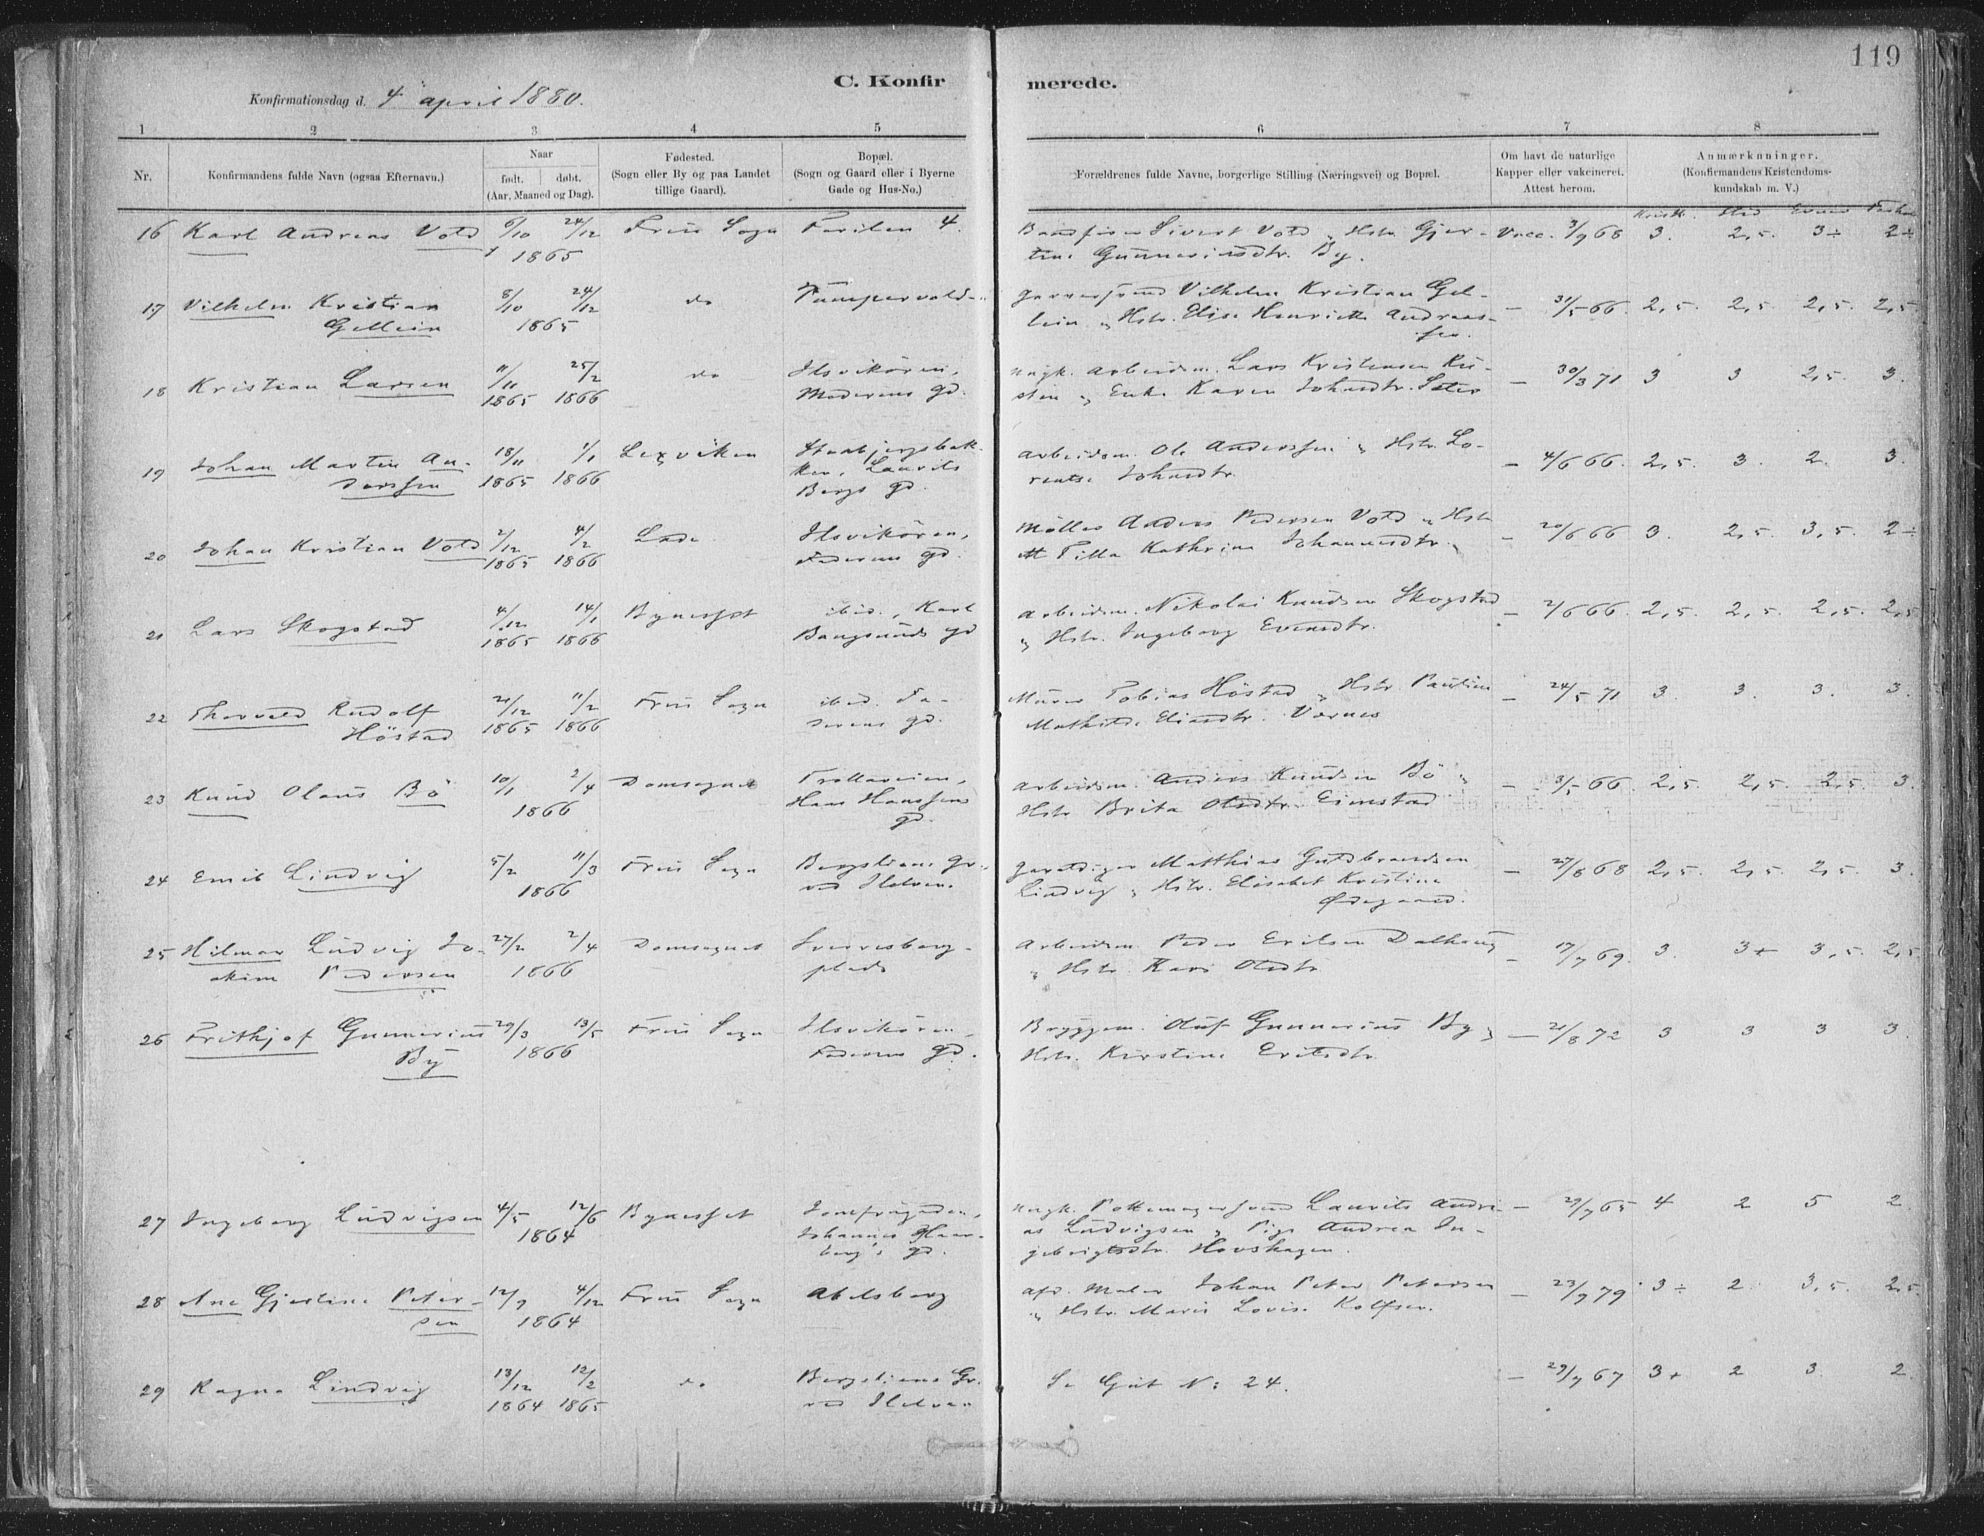 119
C. Konfirmerede.
Konfirmationsdag d. 4 april 1880.
1 2 3 4 5 6 7 8
Nr.
Konfirmandens fulde Navn (ogsaa Efternavn.)
Naar
født. døbt.
(Aar, Maaned og Dag).
Fødested.
(Sogn eller By og paa Landet
tillige Gaard).
Bopæl.
(Sogn og Gaard eller i Byerne
Gade og Hus-No.)
Forældrenes fulde Navne, borgerlige Stilling (Næringsvei) og Bopæl.
Om havt de naturlige
Kapper eller vakcineret.
Attest herom.
Anmærkninger.
(Konfirmandens Kristendoms-
kundskab m. V.)
Kristk. Flid Evner
16 Karl Andreas Vold 6/10 24/12 Frue Sogn 4. Sivert Vold Hstr. Gjer- Vacc. 3/9 68 3. 2,5. 3÷ 2÷
1865 tine By.
17 Vilhelm Kristian 8/10 24/12 do Vilhelm Kristian Gel- — 31/5 66. 2,5. 2,5. 2,5. 2,5.
Gellein 1865 lein Hstr. Elise Henriette Andreas-
sen.
18 Kristian Larsen 11/11 25/2 do Ilsvikören, ungk. arbeidsm. Lars Kristensen — 30/3 71 3 3 2,5. 3.
1865 1866 Moderens gd. Enke Karen Johnsdtr.
19 Johan Martin An- 18/11 1/1 Lexviken arbeidsm. Ole Anderssen Hstr. Lo- — 4/6 66. 2,5. 3. 2. 3.
derssen 1865 1866 Laurits rentse Johnsdtr.
Bergs gd.
20 Johan Kristian Vold 2/12 4/2 Lade Ilsvikören, Möller Anders Pedersen Vold Hstr. — 20/6 66 3. 2,5. 3,5. 2÷
1865 1866 Faderens gd. Kathrine Johannesdtr.
21 Lars Skogstad 4/12 14/1 Bynesset ibid., Karl arbeidsm. Nikolai Knudsen Skogstad — 2/6 66. 2,5. 2,5. 2,5. 2,5
1865 1866 Bangsunds gd Hstr. Ingeborg Evensdtr.
22 Thorvald Rudolf 21/12 11/2 Frue Sogn ibid. Fa- Murer Tobias Höstad Hstr. Pauline — 24/5 71 3. 3. 3. 3.
Höstad 1865 1866 derens gd. Mathilde Eliasdtr. Værnes
23 Knud Olaus Bö 10/1 2/4 Domsognet Trollaveien, arbeidsm. Anders Knudsen Bö — 3/5 66. 2,5. 2,5. 2,5. 3.
1866 Hans Hanssens Hstr. Brita Olsdtr. Eimstad
gd.
24 Emil Lindvig 5/2 11/3 Frue Sogn Bergsliens Gr. Matthias Guldbrandsen — 27/8 68 2,5. 2,5. 2,5. 3.
1866 ved Ilelven. Lindvig Hstr. Elisabet Kristine
Ødegaard.
25 Hilmar Ludvig Jo- 27/2 2/4 Domsognet Sverresborg- Arbeidsm. Peder Erilsen Dalhaug — 17/7 69. 3. 3+ 3,5. 2,5
akim Pedersen 1866 plads Hstr. Kari Olsdtr
26 Frithjof Gunnerius 29/3 13/5 Frue Sogn Ilsvikören, Bryggem. Oluf Gunnerius By — 21/8 72 3 3 3 3.
By 1866 Faderens gd. Hstr. Kirstine Eriksdtr.
27 Ingeborg Ludvigsen 4/5 12/6 Bynesset ungk. Pottemagersvend Laurits Andre- — 29/7 65 4 2 5 2
1864 Johannes as Ludvigsen Pige Andrea In-
berg's gd. gebrigtsdtr. Hovshagen.
28 Ane Gjertine Peter- 12/9 4/12 Frue Sogn Abelsborg afd. Maler Johan Peter Petersen — 23/9 79 3÷ 2 3,5. 2,5
sen 1864 Hstr. Marie Lovise Rolfsen.
29 Ragna Lindvig 13/12 12/2 do Bergsliens Gr. Se Gut N: 24. — 29/7 67 3+ 2 3. 2
1864 1865 ved Ilelven